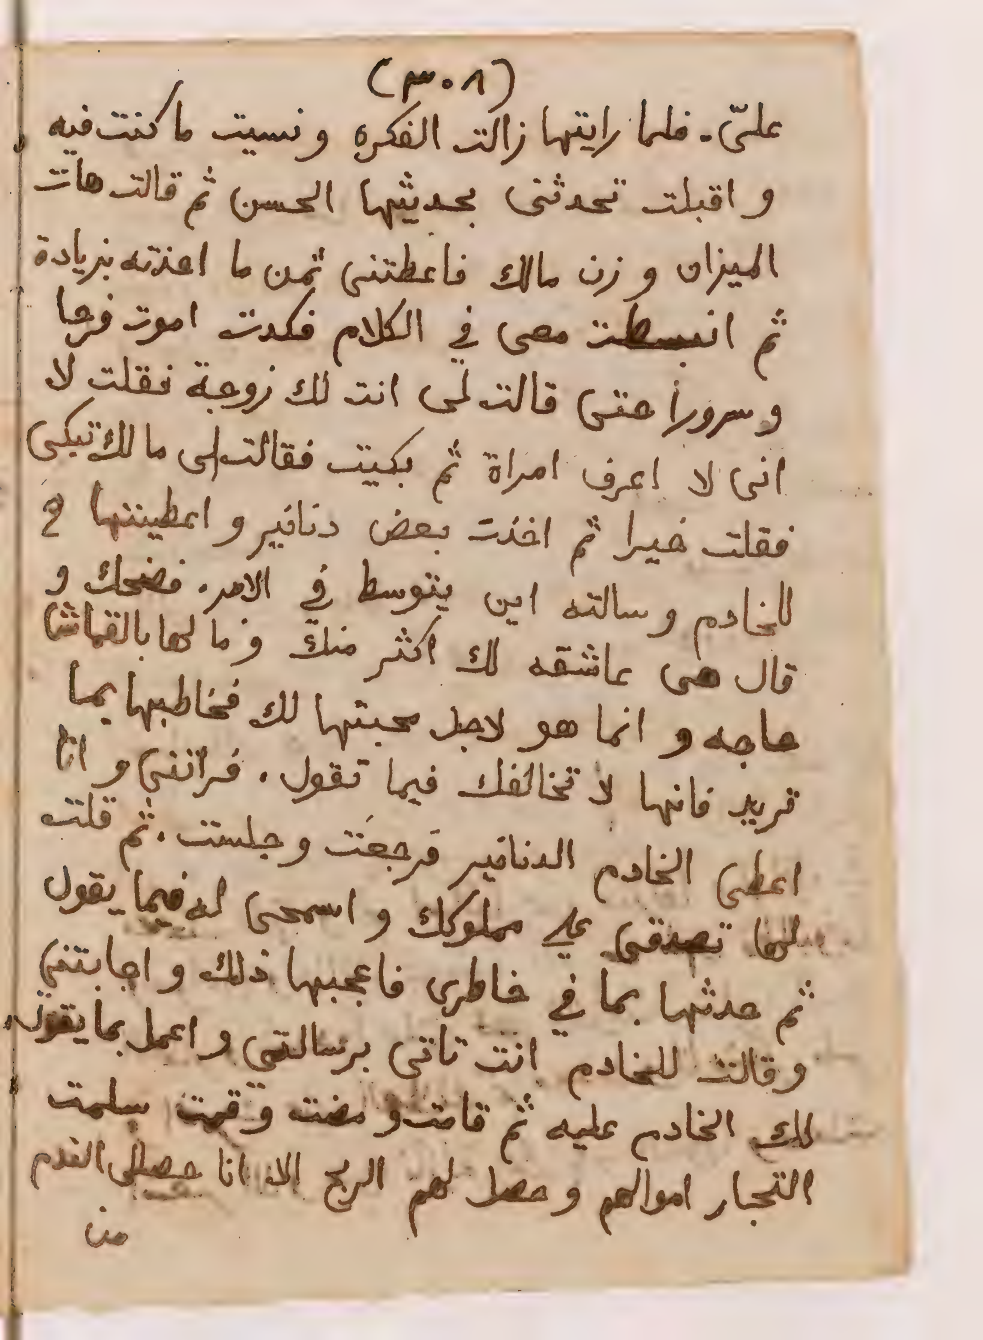 (٣٠٨)
عليّ. فلما رايتها زالت الفكره ونسيت ما كنت فيه
و اقبلت تحدثنى بحديثها الحسن ثم قالت هات
الميزان و زن مالك فاعطتنى ثمن ما اخذته بزيادة
ثم انبسطت معى في الكلام فكدت اموت فرحا
و سرورا حتى قالت لى انت لك زوجة فقلت لا
انى لا اعرف امراة ثم بكيت فقالت لى مالك تبكى
فقلت خيرا ثم اخذت بعض دنانير و اعطيتها
للخادم و سالته اين يتوسط في الامر. فضحك و
قال هى عاشقه لك اكثر منك و ما لها بالقماش
حاجه و انما هو لاجل محبتها لك فخاطبها بما
تريد فانها لا تخالفك فيما تقول. فراتنى و انا
اعطى الخادم الدنانير فرجعت و جلست. ثم قلت
لها تصدقى على مملوكك و اسمحى له فيما يقول
ثم حدثتها بما في خاطرى فاعجبها ذلك و اجابتنى
و قالت للخادم انت تاتى برسالتى و اعمل بما يقول
لك الخادم عليه ثم قامت و مضت و قمت سلمت
التجار اموالهم و حصل لهم الربح الا انا حصلى الندم
من